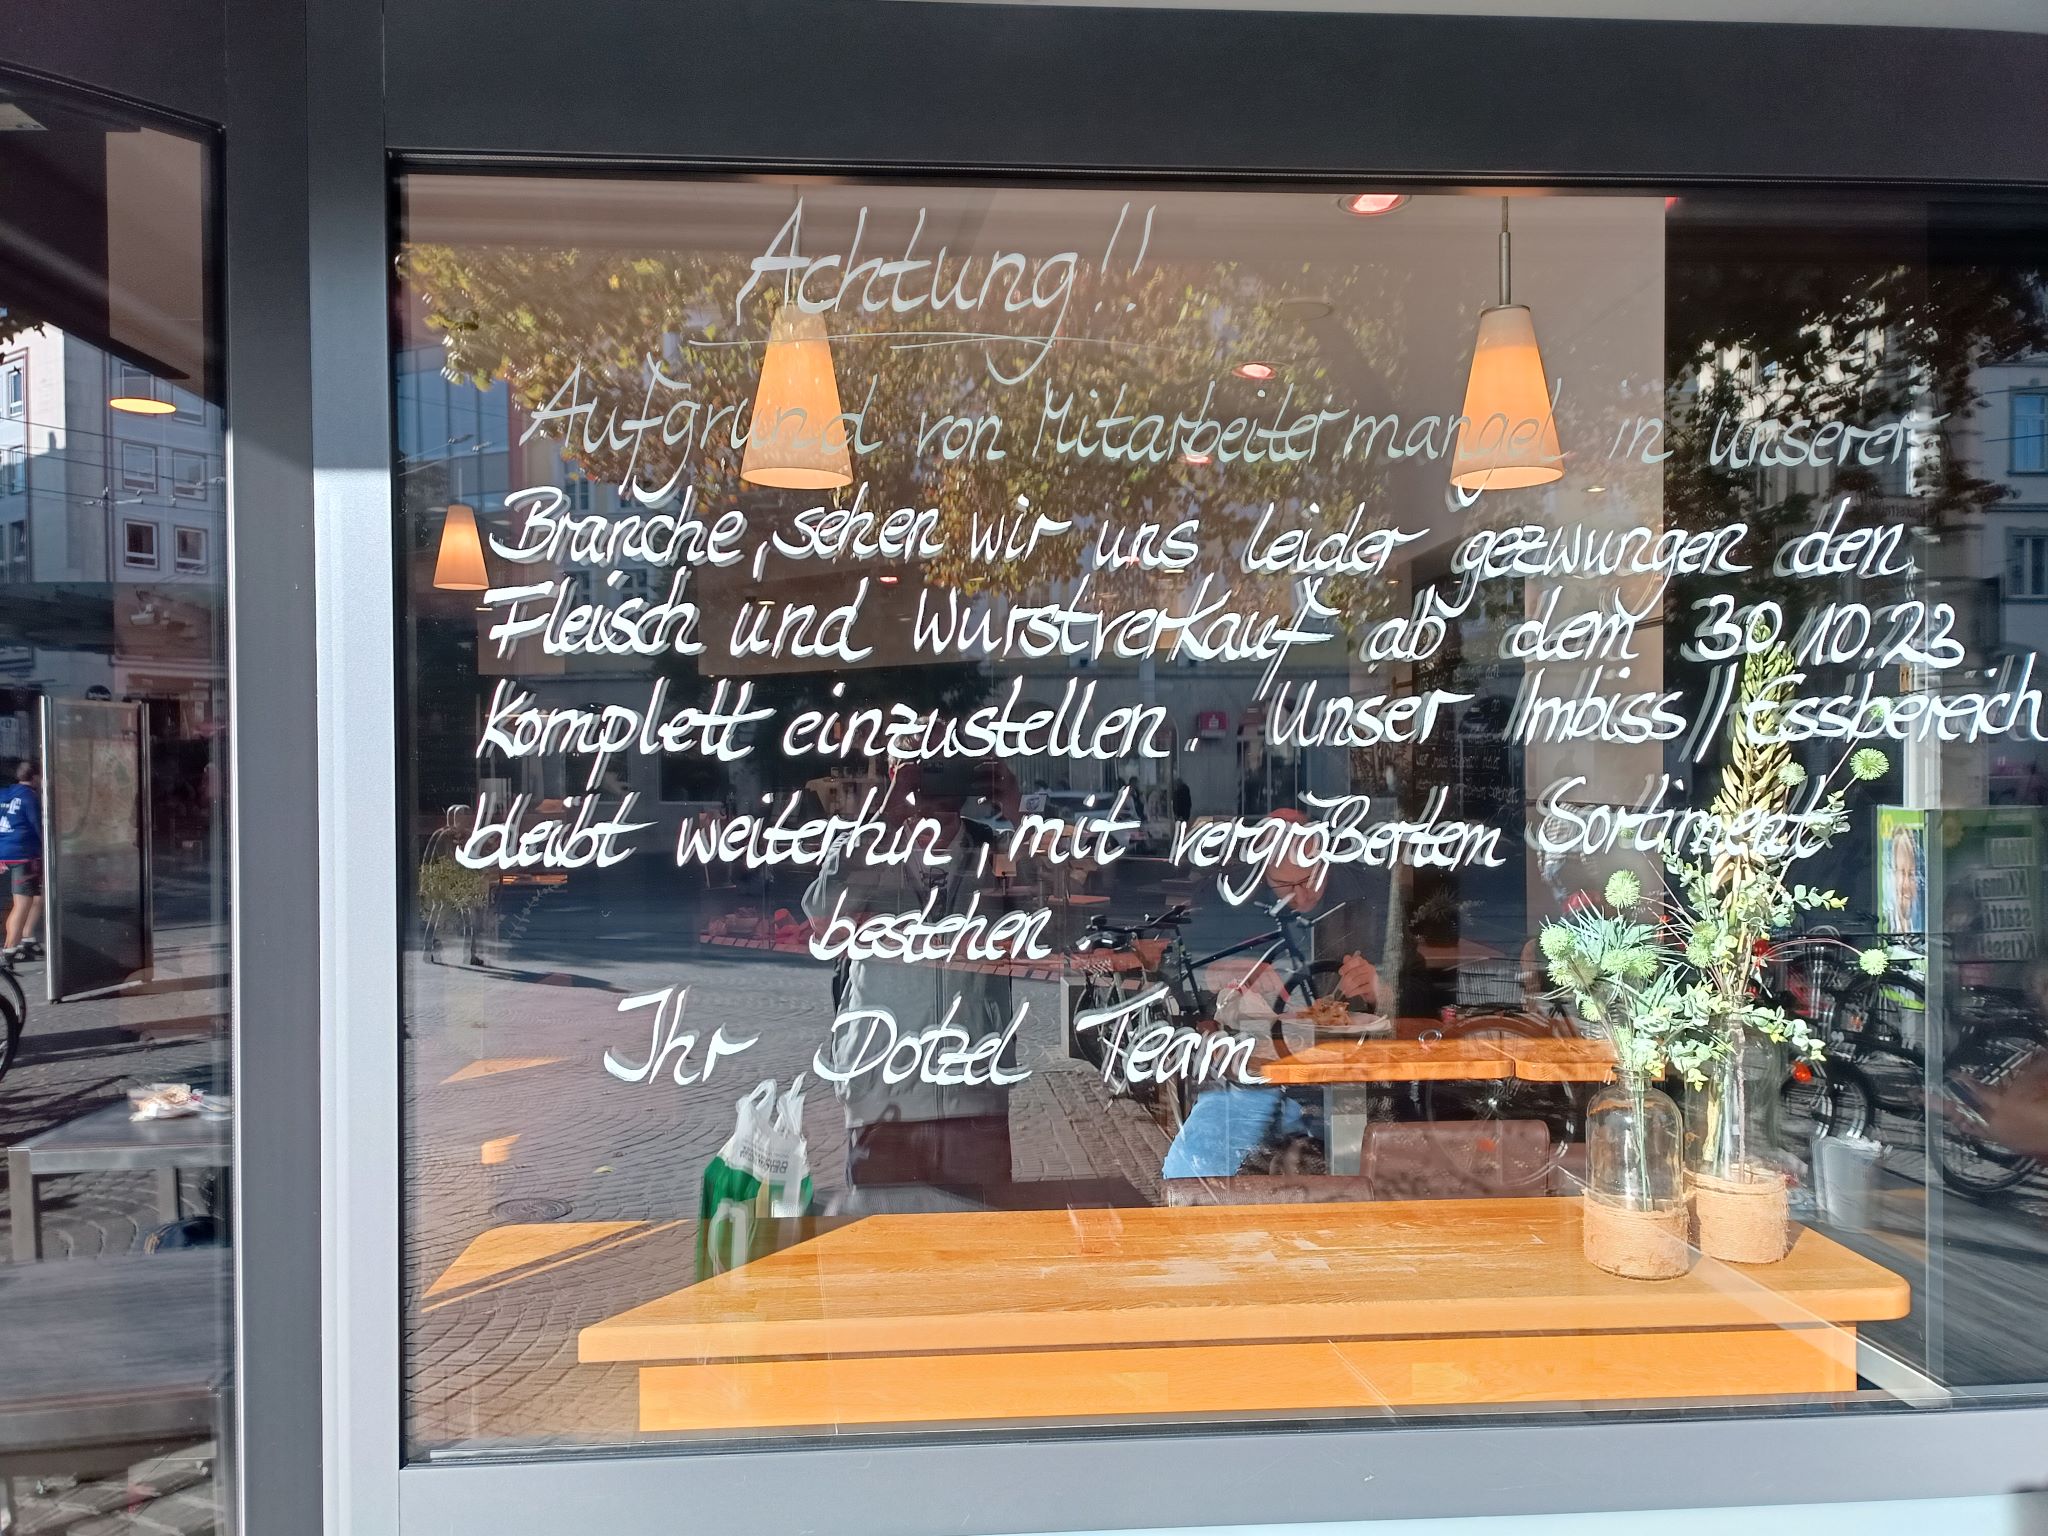 Achtung!!
Aufgrund von Mitarbeitermangel in unserer
Branche, sehen wir uns leider gezwungen den
Fleisch und Wurstverkauf ab dem 30.10.23
Komplett einzustellen. Unser Imbiss/Essbereich
bleibt weiterhin, mit vergrößertem Sortiment
bestehen.
Ihr Dotzel Team